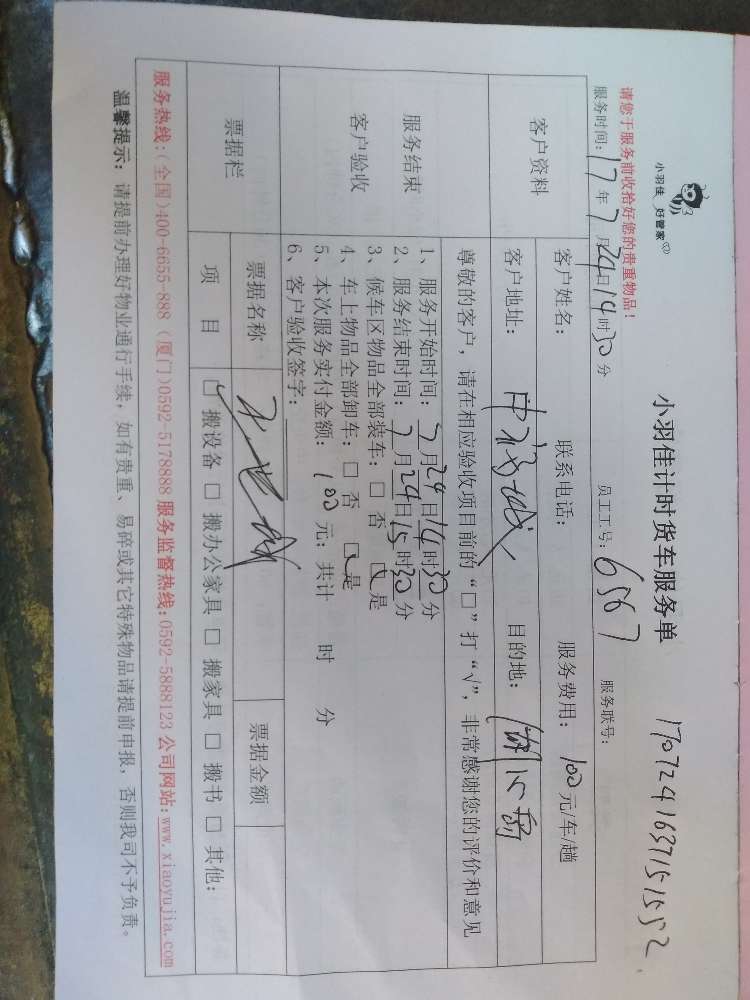 小羽佳 好管家
小羽佳计时货车服务单
1707241637151552
请您于服务前收拾好您的贵重物品！
服务时间：17年7月24日14时30分 员工工号：6567 服务联号：
客户资料
客户姓名： 联系电话： 服务费用：100元/车/趟
客户地址： 目的地：湖心岛
尊敬的客户，请在相应验收项目前的“□”打“√”，非常感谢您的评价和意见
服务结束
客户验收
1、服务开始时间：7月24日14时30分
2、服务结束时间：7月24日15时30分
3、候车区物品全部装车：□ 否 □ 是
4、车上物品全部卸车：□ 否 □ 是
5、本次服务实付金额：100元；共计 时 分
6、客户验收签字：
票据栏
票据名称 票据金额
项 目 □ 搬设备 □ 搬办公家具 □ 搬家具 □ 搬书 □ 其他：
服务热线：(全国)400-6655-888 (厦门)0592-5178888 服务监督热线：0592-5888123 公司网站：www.xiaoyujia.com
温馨提示： 请提前办理好物业通行手续，如有贵重、易碎或其它特殊物品请提前申报，否则我司不予负责。